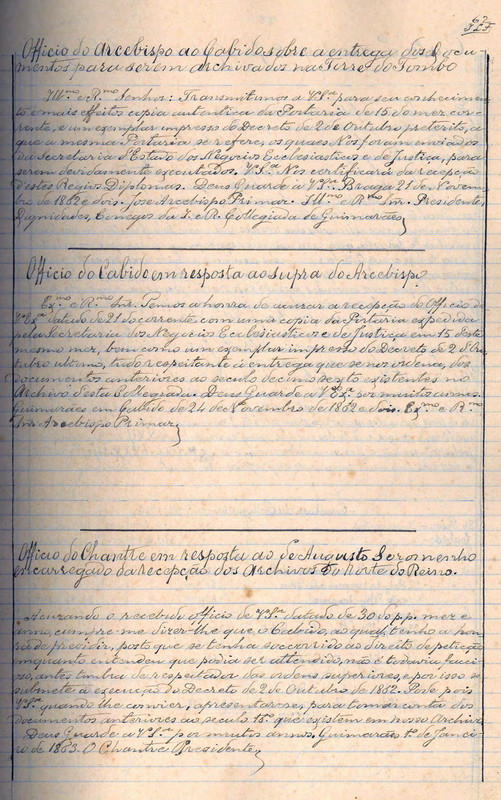 67
Officio do Arcebispo ao Cabido sobre a entrega dos Docu-
mentos para serem archivados na Torre do Tombo
Ill.mo e R.mo Senhor: Transmittimos a V.S.ra para seu conhecimen-
to e mais effeitos copia autentica da Portaria de 15 do mez cor-
rente, e um exemplar impresso do Decreto de 2 de Outubro preterito, a
que a mesma Portaria se refere, os quaes Nos foram enviados
da Secretaria d'Estado dos Negocios Ecclesiasticos e de Justiça, para
serem devidamente executados. V.S.ra Nos certificará da recepção
d'estes Regios Diplomas. Deus Guarde a V.S.ra Braga 21 de Novem-
bro de 1862 e dois. José Arcebispo Primaz. Ill.mo e R.mo Snr. Presidente,
Dignidades, Conegos da I. e R. Collegiada de Guimarães,
Officio do Cabido em resposta ao supra do Arcebispo
Ex.mo e R.mo Snr. Temos a honra de accusar a recepção do Officio de
V.Ex.ª datado de 21 do corrente com uma copia da Portaria expedida
pela Secretaria dos Negocios Ecclesiasticos e de Justiça em 15 deste
mesmo mez, bem como um exemplar impresso do Decreto de 2 d'Ou-
tubro ultimo, tudo respeitante á entrega que se nos ordena, dos
documentos anteriores ao seculo decimo sexto existentes no
Archivo desta Collegiada. Deus Guarde a V.Ex.ª por muitos annos.
Guimarães em Cabido de 24 de Novembro de 1862 e dois. Ex.mo e R.mo
Snr. Arcebispo Primaz,
Officio do Chantre em resposta ao de Augusto Soromenho
encarregado da recepção dos Archivos do Norte do Reino.
Acuzando o recebido officio de V.S.ra datado de 30 do p.p. mez e
anno, cumpre-me dizer-lhe que o Cabido, ao qual tenho a hon-
ra de presidir, posto que se tenha soccorrido ao direito de petição
emquanto entendeu que podia ser attendido, não é todavia faccio-
so, antes timbra de respeitador das ordens superiores, e por isso se
submete á execução do Decreto de 2 de Outubro de 1862. Pode pois
V.S.ra quando lhe convier, apresentar-se, para tomar conta dos
Documentos anteriores ao seculo 15º que existem em nosso Archivo.
Deus Guarde a V.S.ra por muitos annos. Guimarães 1º de Janei-
ro de 1863. O Chantre Presidente,